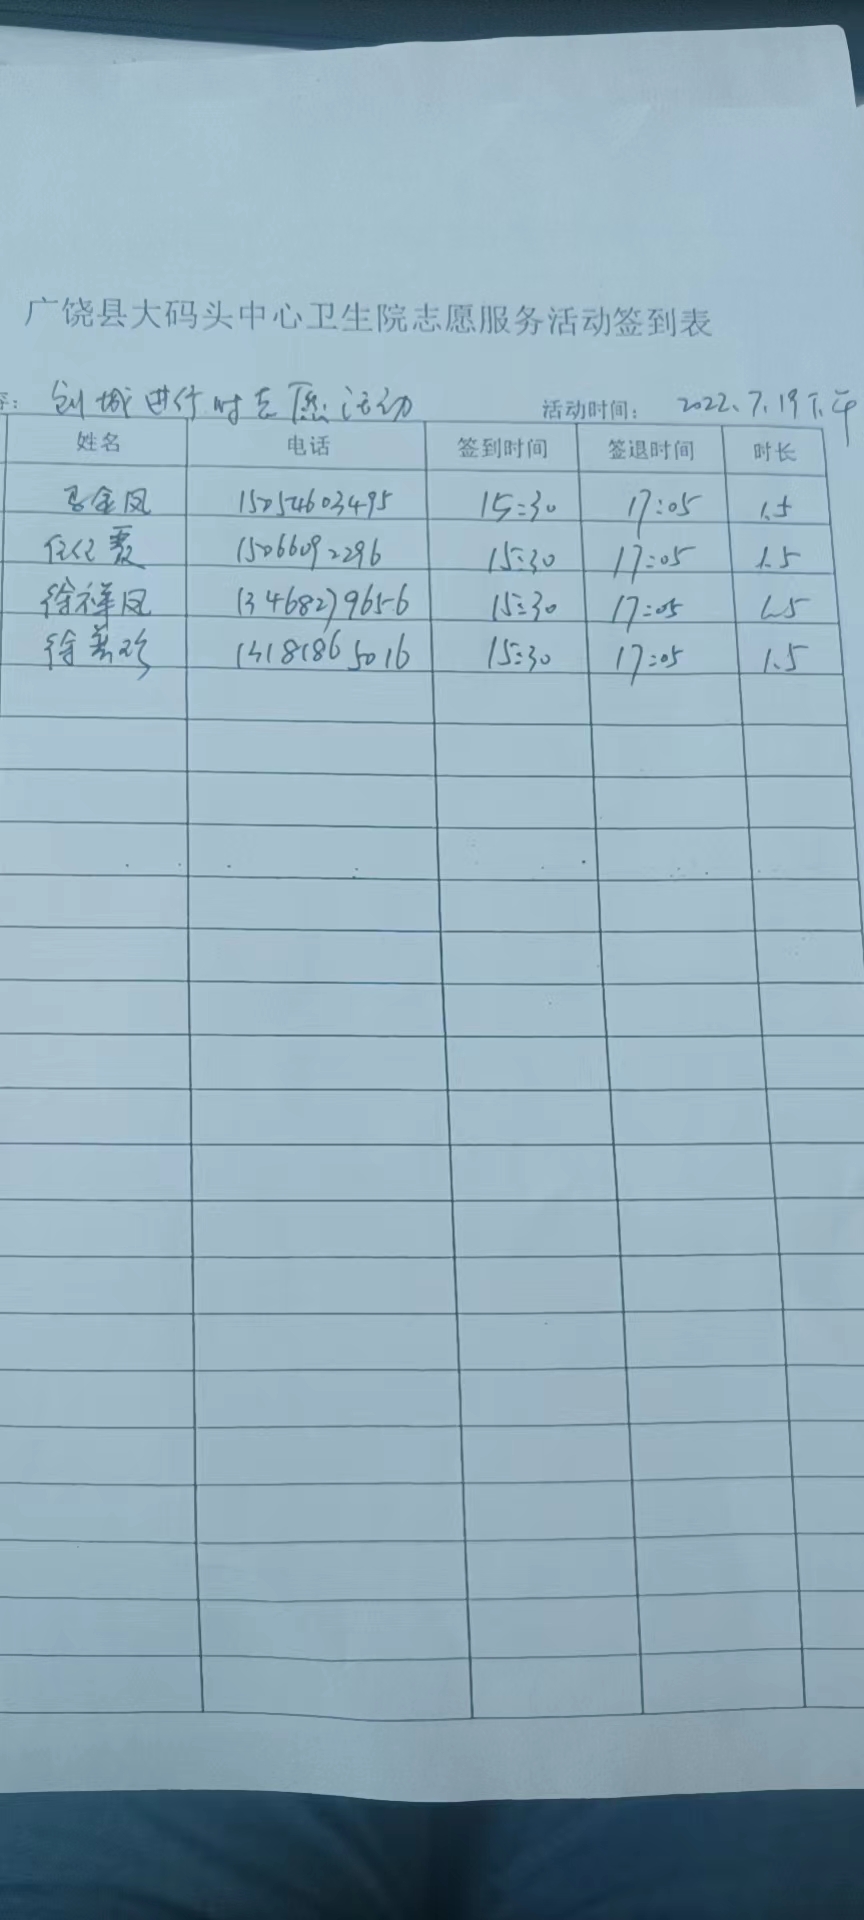 广饶县大码头中心卫生院志愿服务活动签到表
容: 创城进行时志愿活动 活动时间: 2022.7.19下午
姓名 电话 签到时间 签退时间 时长
金凤 15054603495 15:30 17:05 1.5
任 霞 15066092296 15:30 17:05 1.5
徐祥凤 13468279656 15:30 17:05 1.5
徐 珍 13181865016 15:30 17:05 1.5